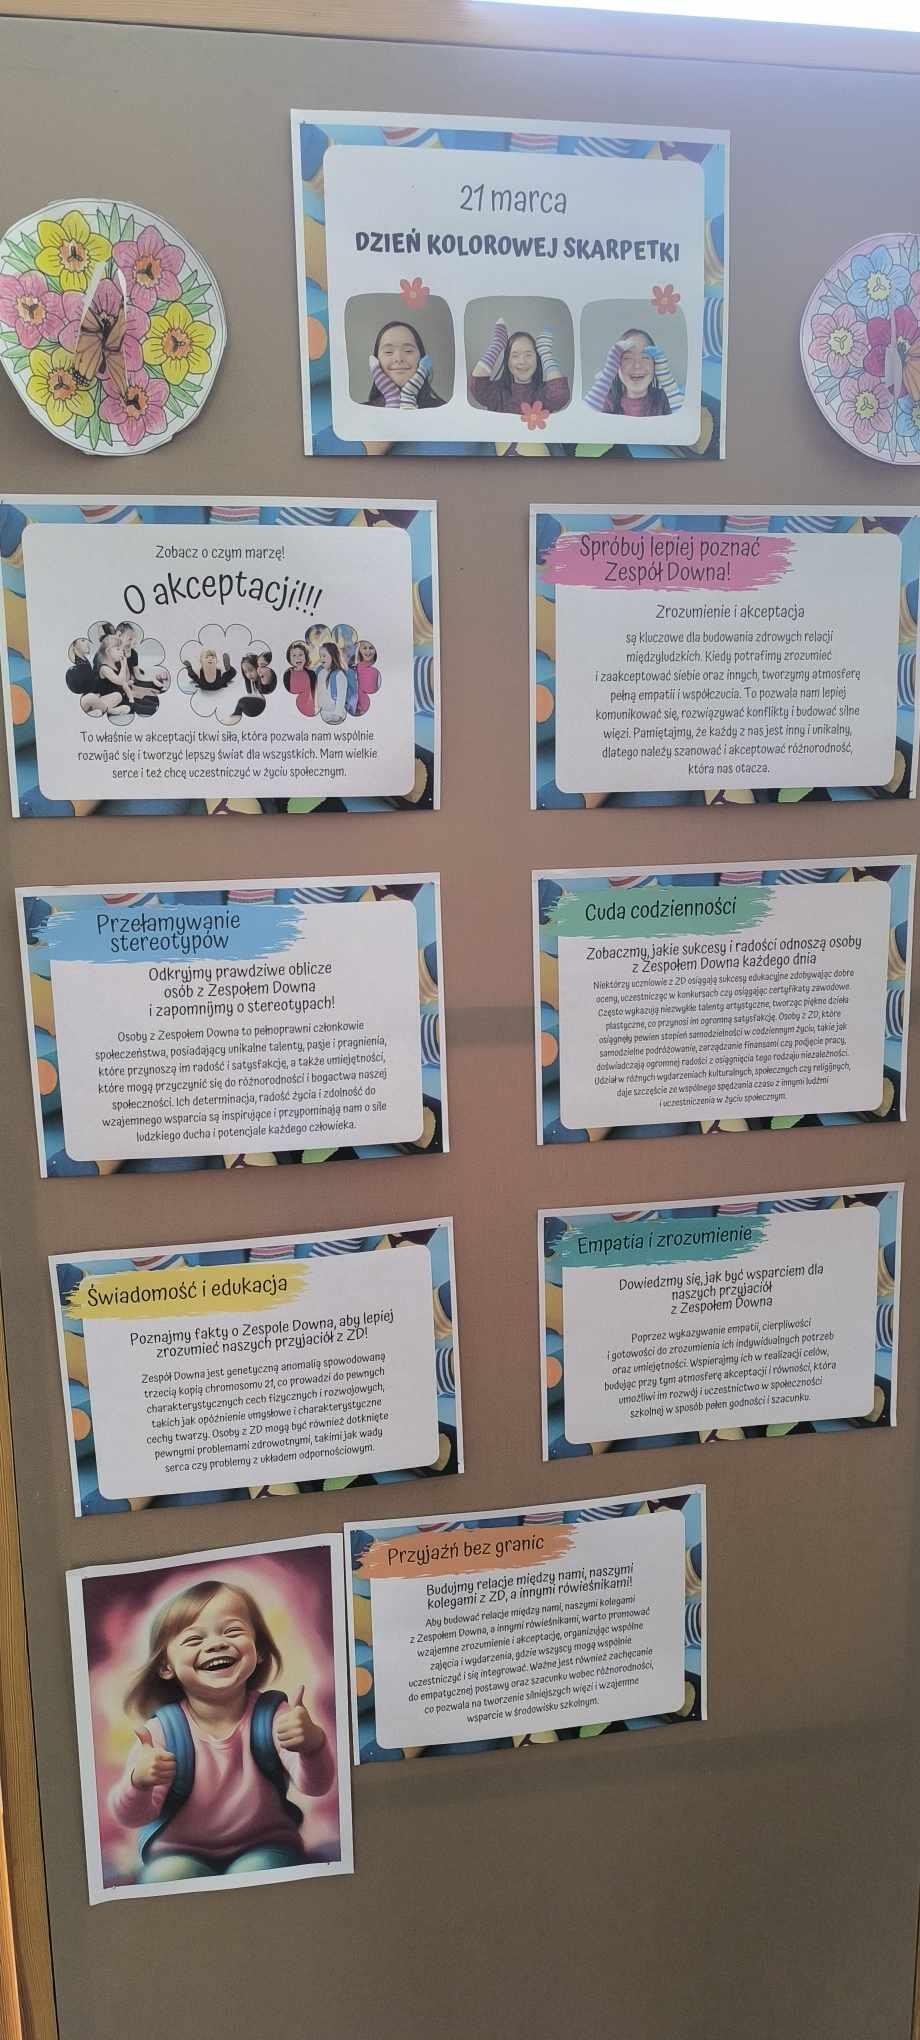 21 marca
DZIEŃ KOLOROWEJ SKARPETKI
Zobacz o czym marzę!
O akceptacji!!!
To właśnie w akceptacji tkwi siła, która pozwala nam wspólnie
rozwijać się i tworzyć lepszy świat dla wszystkich. Mam wielkie
serce i też chcę uczestniczyć w życiu społecznym.
Spróbuj lepiej poznać
Zespół Downa!
Zrozumienie i akceptacja
są kluczowe dla budowania zdrowych relacji
międzyludzkich. Kiedy potrafimy zrozumieć
i zaakceptować siebie oraz innych, tworzymy atmosferę
pełną empatii i współczucia. To pozwala nam lepiej
komunikować się, rozwiązywać konflikty i budować silne
więzi. Pamiętajmy, że każdy z nas jest inny i unikalny,
dlatego należy szanować i akceptować różnorodność,
która nas otacza.
Przełamywanie
stereotypów
Odkryjmy prawdziwe oblicze
osób z Zespołem Downa
i zapomnijmy o stereotypach!
Osoby z Zespołem Downa to pełnoprawni członkowie
społeczeństwa, posiadający unikalne talenty, pasje i pragnienia,
które przynoszą im radość i satysfakcję, a także umiejętności,
które mogą przyczynić się do różnorodności i bogactwa naszej
społeczności. Ich determinacja, radość życia i zdolność do
wzajemnego wsparcia są inspirujące i przypominają nam o sile
ludzkiego ducha i potencjale każdego człowieka.
Cuda codzienności
Zobaczmy, jakie sukcesy i radości odnoszą osoby
z Zespołem Downa każdego dnia
Niektórzy uczniowie z ZD osiągają sukcesy edukacyjne zdobywając dobre
oceny, uczestnicząc w konkursach czy osiągając certyfikaty zawodowe.
Często wykazują niezwykłe talenty artystyczne, tworząc piękne dzieła
plastyczne, co przynosi im ogromną satysfakcję. Osoby z ZD, które
osiągnęły pewien stopień samodzielności w codziennym życiu, takie jak
samodzielne podróżowanie, zarządzanie finansami czy podjęcie pracy,
doświadczają ogromnej radości z osiągnięcia tego rodzaju niezależności.
Udział w różnych wydarzeniach kulturalnych, społecznych czy religijnych,
daje szczęście ze wspólnego spędzania czasu z innymi ludźmi
i uczestniczenia w życiu społecznym.
Świadomość i edukacja
Poznajmy fakty o Zespole Downa, aby lepiej
zrozumieć naszych przyjaciół z ZD!
Zespół Downa jest genetyczną anomalią spowodowaną
trzecią kopią chromosomu 21, co prowadzi do pewnych
charakterystycznych cech fizycznych i rozwojowych,
takich jak opóźnienie umysłowe i charakterystyczne
cechy twarzy. Osoby z ZD mogą być również dotknięte
pewnymi problemami zdrowotnymi, takimi jak wady
serca czy problemy z układem odpornościowym.
Empatia i zrozumienie
Dowiedzmy się, jak być wsparciem dla
naszych przyjaciół
z Zespołem Downa
Poprzez wykazywanie empatii, cierpliwości
i gotowości do zrozumienia ich indywidualnych potrzeb
oraz umiejętności. Wspierajmy ich w realizacji celów,
budując przy tym atmosferę akceptacji i równości, która
umożliwi im rozwój i uczestnictwo w społeczności
szkolnej w sposób pełen godności i szacunku.
Przyjaźń bez granic
Budujmy relacje między nami, naszymi
kolegami z ZD, a innymi rówieśnikami!
Aby budować relacje między nami, naszymi kolegami
z Zespołem Downa, a innymi rówieśnikami, warto promować
wzajemne zrozumienie i akceptację, organizując wspólne
zajęcia i wydarzenia, gdzie wszyscy mogą wspólnie
uczestniczyć i się integrować. Ważne jest również zachęcanie
do empatycznej postawy oraz szacunku wobec różnorodności,
co pozwala na tworzenie silniejszych więzi i wzajemne
wsparcie w środowisku szkolnym.